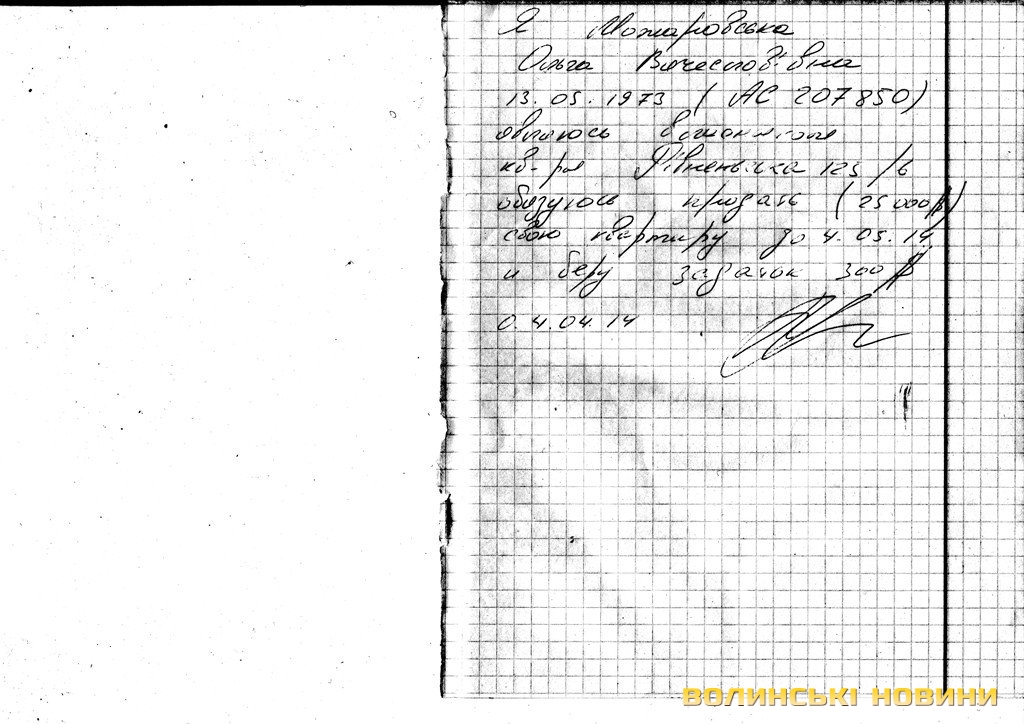 Я Можаровська
Ольга Вячеславівна
13.05.1973 (АС 207850)
являюсь
кв-ры Рівненська 125/6
обязуюсь продать (25000$)
свою квартиру до 4.05.14
и беру задаток 300$
04.04.14
ВОЛИНСЬКІ НОВИНИ